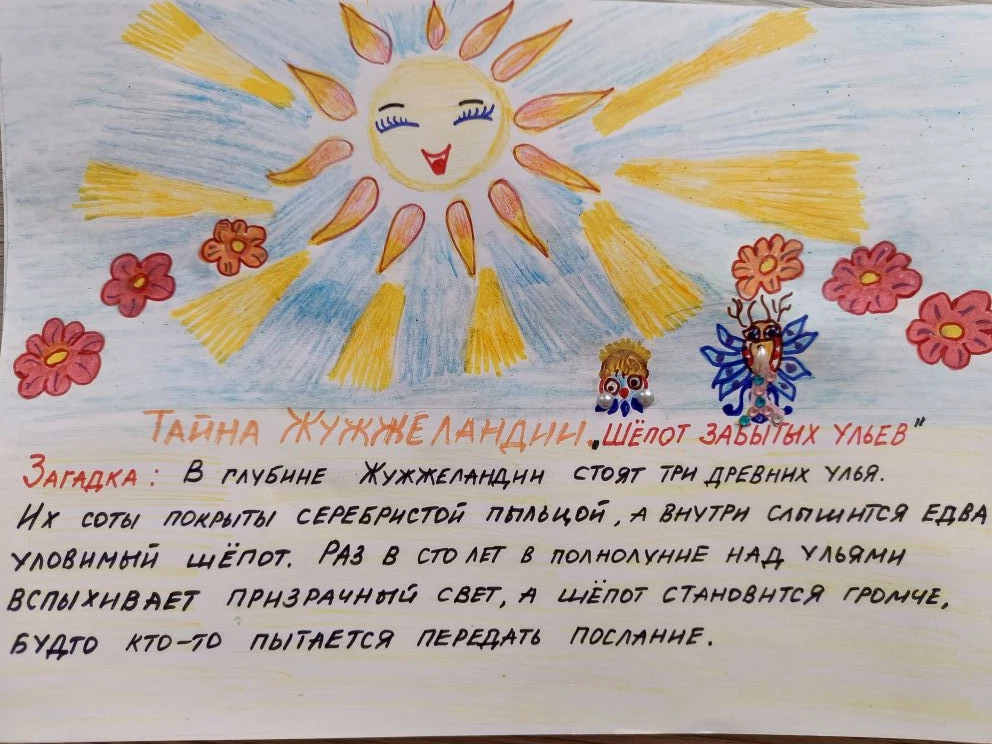 ТАЙНА ЖУЖЖЕЛАНДИИ „ШЁПОТ ЗАБЫТЫХ УЛЬЕВ"
ЗАГАДКА: В ГЛУБИНЕ ЖУЖЖЕЛАНДИИ СТОЯТ ТРИ ДРЕВНИХ УЛЬЯ.
ИХ СОТЫ ПОКРЫТЫ СЕРЕБРИСТОЙ ПЫЛЬЦОЙ, А ВНУТРИ СЛЫШИТСЯ ЕДВА
УЛОВИМЫЙ ШЁПОТ. РАЗ В СТО ЛЕТ В ПОЛНОЛУНИЕ НАД УЛЬЯМИ
ВСПЫХИВАЕТ ПРИЗРАЧНЫЙ СВЕТ, А ШЁПОТ СТАНОВИТСЯ ГРОМЧЕ,
БУДТО КТО-ТО ПЫТАЕТСЯ ПЕРЕДАТЬ ПОСЛАНИЕ.